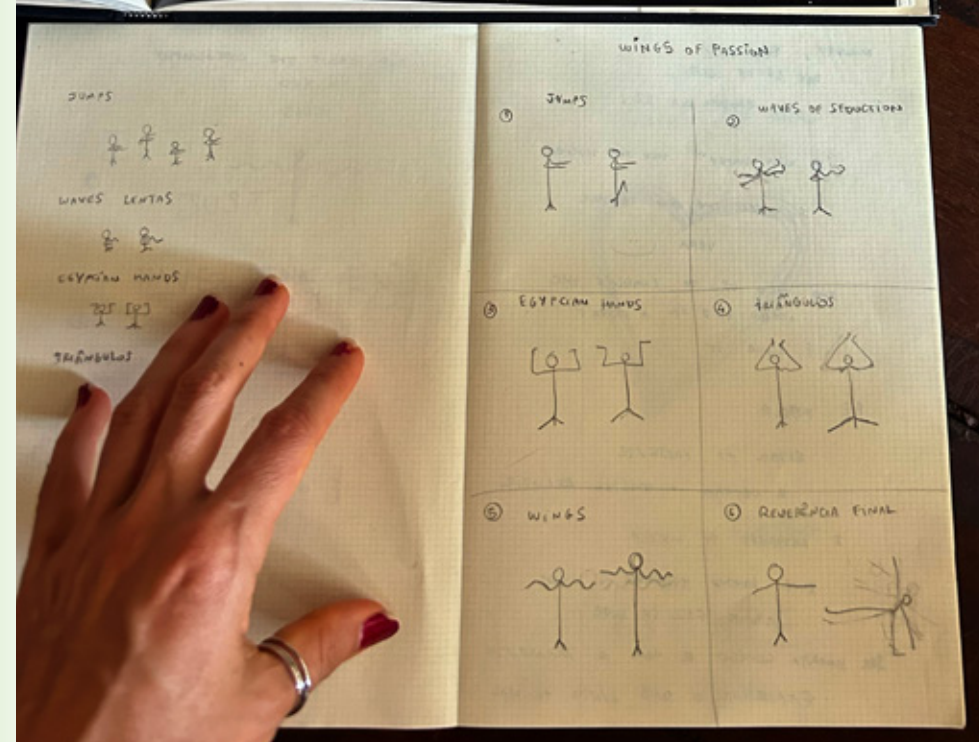 JUMPS
WAVES LENTAS
EGYPCIAN HANDS
TRIÂNGULOS
WINGS OF PASSION
① JUMPS
② WAVES OF SEDUCTION
③ EGYPCIAN HANDS
④ TRIÂNGULOS
⑤ WINGS
⑥ REVERÊNCIA FINAL